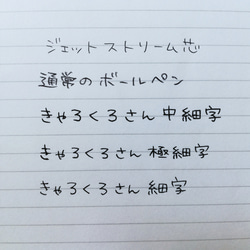 ジェットストリーム芯
通常のボールペン
きゃろくろさん 中細字
きゃろくろさん 極細字
きゃろくろさん 細字